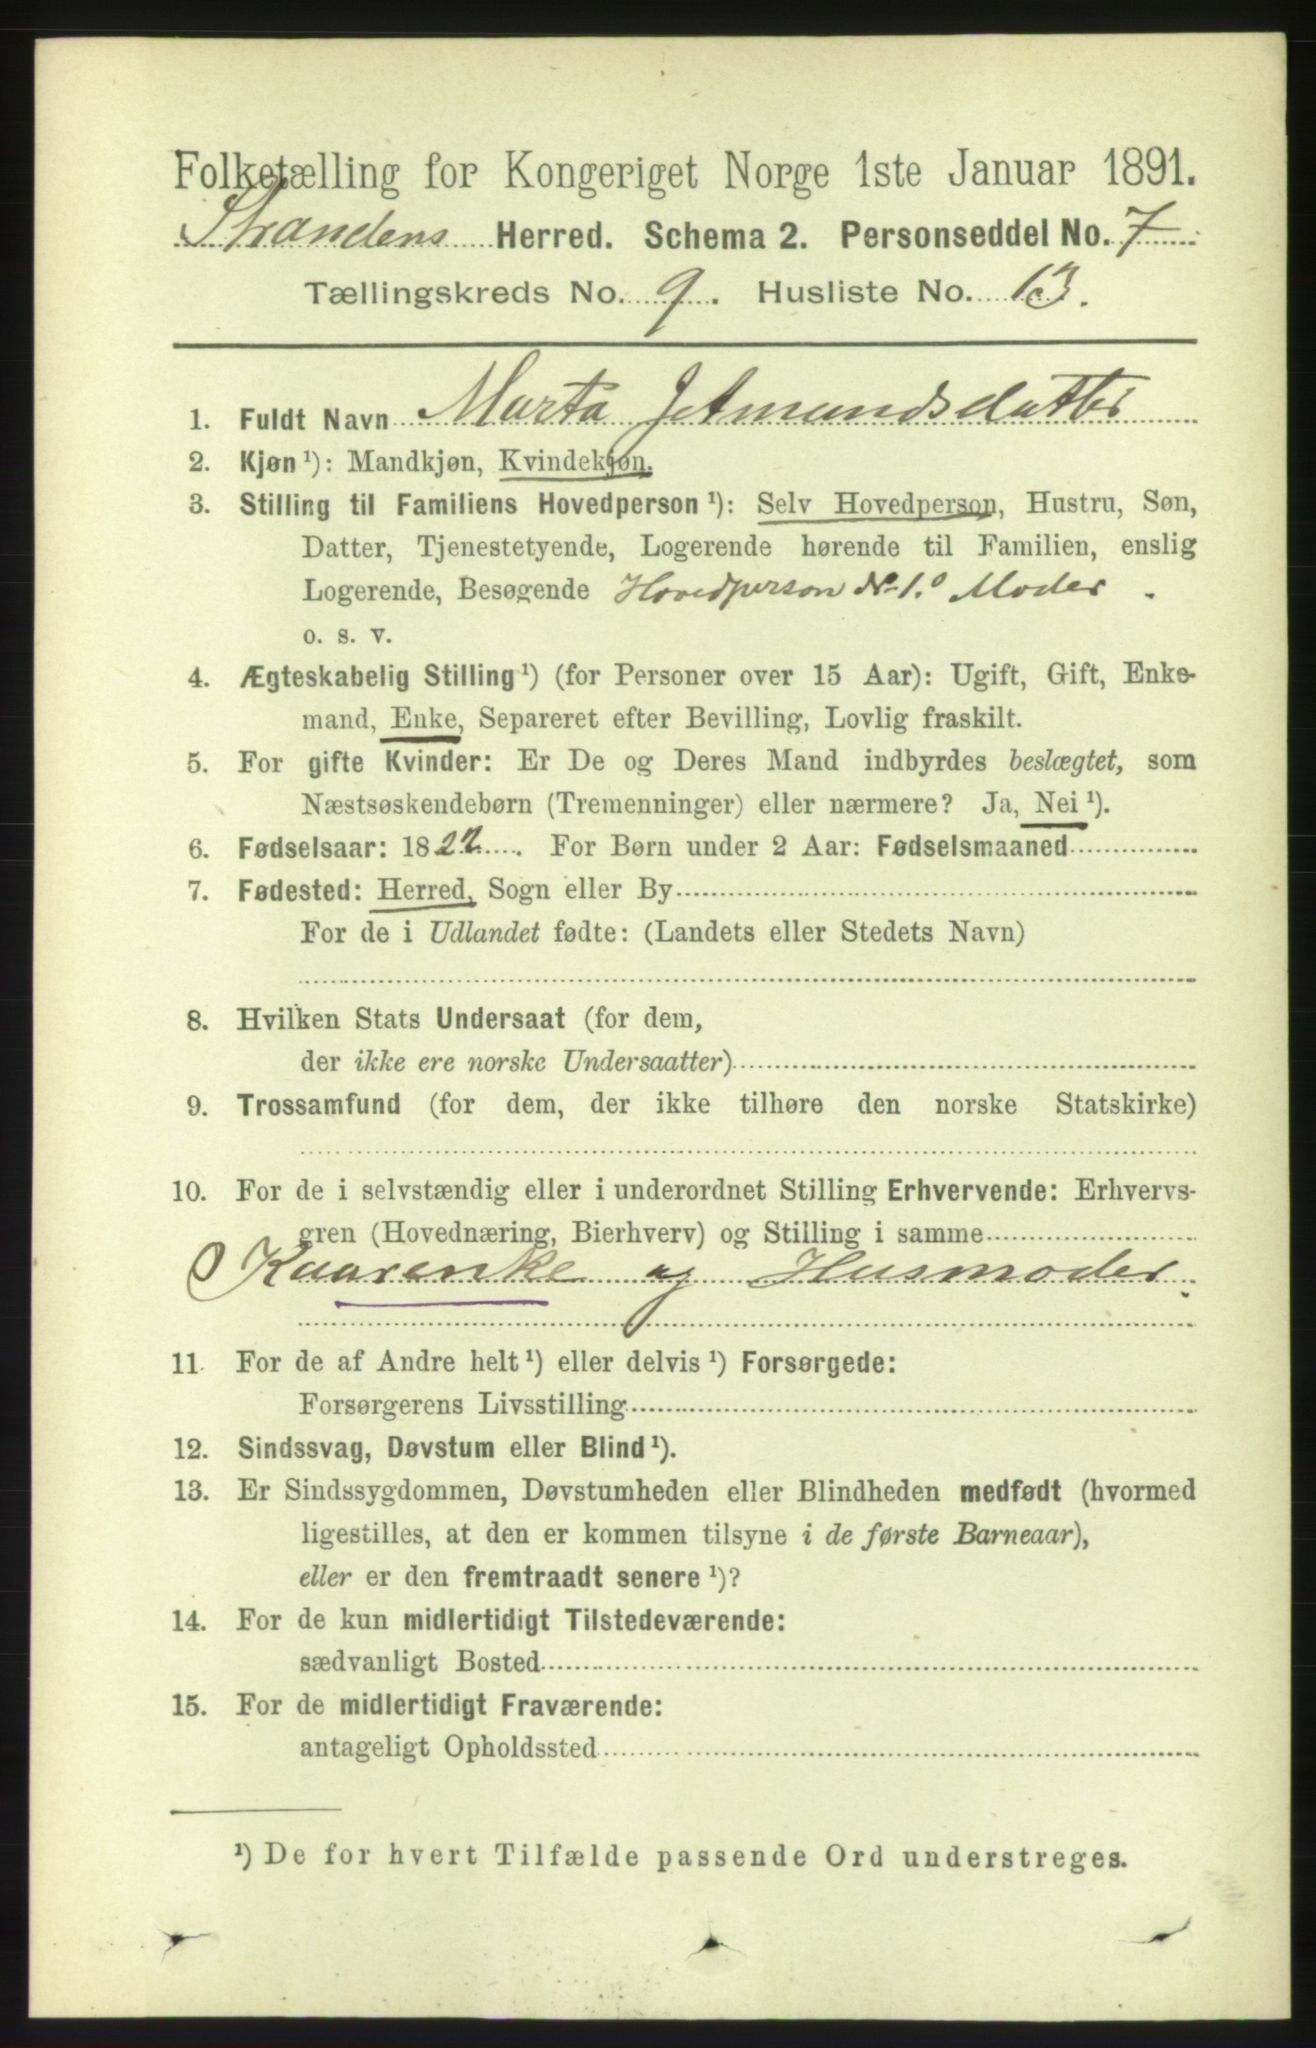 Folketælling for Kongeriget Norge 1ste Januar 1891.
Strandens Herred. Schema 2. Personseddel No. 7
Tællingskreds No. 9. Husliste No. 13.
1. Fuldt Navn Marta Jetmundsdatter
2. Kjøn ¹): Mandkjøn, Kvindekjøn.
3. Stilling til Familiens Hovedperson ¹): Selv Hovedperson, Hustru, Søn,
Datter, Tjenestetyende, Logerende hørende til Familien, enslig
Logerende, Besøgende Hovedperson No 1.s Moder.
o. s. v.
4. Ægteskabelig Stilling ¹) (for Personer over 15 Aar): Ugift, Gift, Enke-
mand, Enke, Separeret efter Bevilling, Lovlig fraskilt.
5. For gifte Kvinder: Er De og Deres Mand indbyrdes beslægtet, som
Næstsøskendebørn (Tremenninger) eller nærmere? Ja, Nei ¹).
6. Fødselsaar: 1822. For Børn under 2 Aar: Fødselsmaaned
7. Fødested: Herred, Sogn eller By
For de i Udlandet fødte: (Landets eller Stedets Navn)
8. Hvilken Stats Undersaat (for dem,
der ikke ere norske Undersaatter)
9. Trossamfund (for dem, der ikke tilhøre den norske Statskirke)
10. For de i selvstændig eller i underordnet Stilling Erhvervende: Erhvervs-
gren (Hovednæring, Bierhverv) og Stilling i samme
Kaarenke og Husmoder.
11. For de af Andre helt ¹) eller delvis ¹) Forsørgede:
Forsørgerens Livsstilling
12. Sindssvag, Døvstum eller Blind ¹).
13. Er Sindssygdommen, Døvstumheden eller Blindheden medfødt (hvormed
ligestilles, at den er kommen tilsyne i de første Barneaar),
eller er den fremtraadt senere ¹)?
14. For de kun midlertidigt Tilstedeværende:
sædvanligt Bosted
15. For de midlertidigt Fraværende:
antageligt Opholdssted
¹) De for hvert Tilfælde passende Ord understreges.